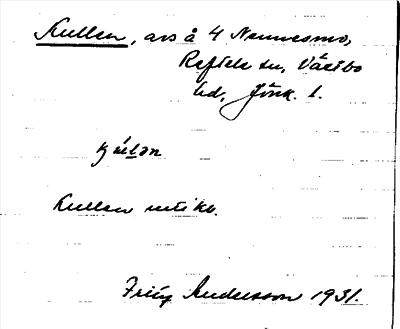 Kullen, avs å 4 Nennesmo,
Reftele sn, Västbo
hd, Jönk. l.
Kullen
Fritz Andersson 1931.